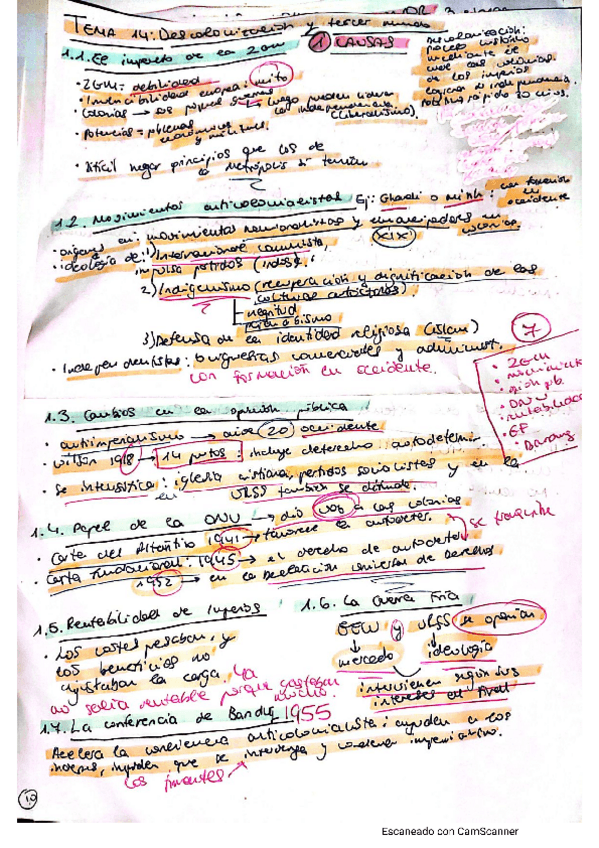 TEMA 14: Descolonización y tercer mundo
1 CAUSAS
Descolonización:
proceso histórico
mediante el
cual las colonias
de los imperios
logran la independencia
1.1. El impacto de la 2GM
· 2GM = debilidad
· Invencibilidad europea: mito
· Colonias →
luego piden
la independencia
(liberalismo).
· Potencias = problemas
económicos
y militares.
· Difícil negar principios que los de
la metrópolis sí tenían
1.2. Movimientos anticolonialistas Ej: Ghandi o Minh : con formación
en
occidente
· orígenes en: movimientos nacionalistas y emancipadores en
colonias
XIX
· ideología de: 1) Internacional comunista,
impulsa partidos (indep).
2) Indigenismo (recuperación y dignificación de las
culturas autóctonas).
negritud
3) Defensa de la identidad religiosa (islam)
· Independentistas: burguesías comerciales y administ.
con formación en occidente.
7
· 2GM
· movimientos
· ONU
· rentabilidad
· GF
· Bandung
1.3. Cambios en la opinión pública
· antiimperialismo → años 20 occidente
· Wilson 1918 → 14 puntos : incluye derecho autodetermin.
· Se intensifica: iglesia cristiana, partidos socialistas y en la
en URSS también se difunde.
1.4. Papel de la ONU → dió voz a las colonias
· Carta del Atlántico 1941 → favorece la autodeter.
· Carta Fundacional: 1945 → el derecho de autodeter
1952 → en la Declaración universal de derechos
1.5. Rentabilidad de Imperios
· Los costes pesaban, y
los beneficios no
ajustaban la carga. Ya
no salía rentable porque gastaban
mucho.
1.6. La Guerra Fría
EEUU y URSS se oponían
mercado
ideología
intervienen según sus
intereses
1.7. La conferencia de Bandung 1955
Acelera la conciencia anticolonialista: ayudan a los
indeps, impiden que se intervenga y condenan imperialismo.
Los
Escaneado con CamScanner